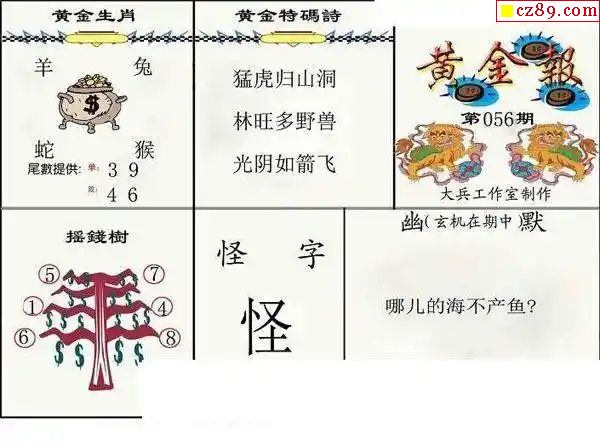 cz89.com
黄金生肖
羊 兔
$
蛇 猴
尾數提供: 单: 3 9
双: 4 6
黄金特碼詩
猛虎归山洞
林旺多野兽
光阴如箭飞
黄金報
第056期
大兵工作室制作
摇錢樹
⑤ ⑦
① ④
⑥ ⑧
怪 字
怪
幽(玄机在期中)默
哪儿的海不产鱼?